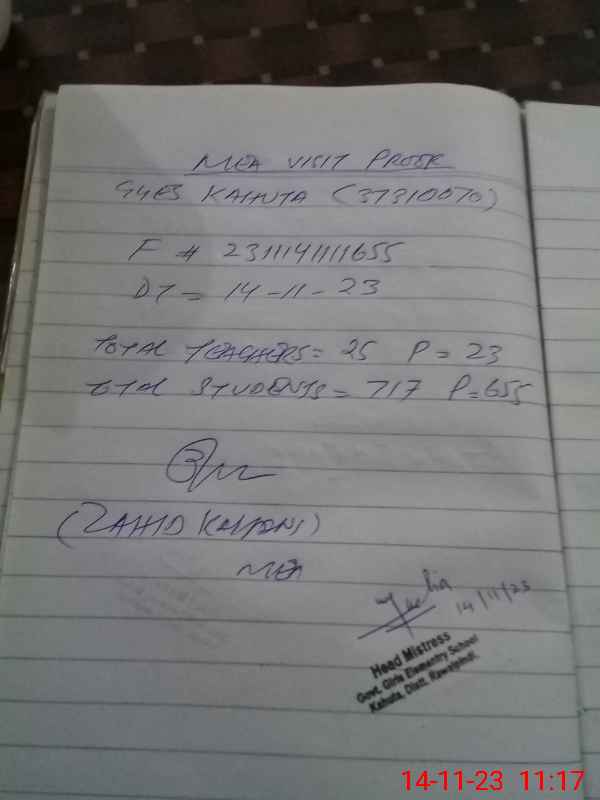 MEA VISIT PROOF
GGES KAHUTA (37310070)
F # 2311141111655
DT = 14-11-23
TOTAL TEACHERS = 25 P = 23
TOTAL STUDENTS = 717 P = 655
(ZAHID KAYANI)
MEA
14/11/23
Head Mistress
Govt. Girls Elementry School
Kahuta, Distt. Rawalpindi.
14-11-23 11:17